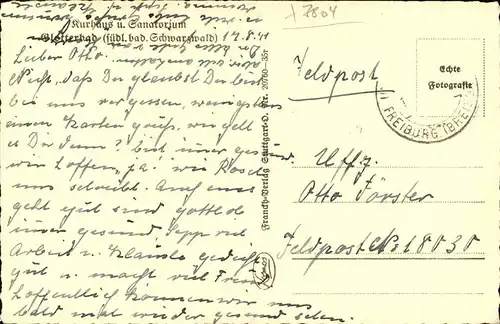 2804
Kurhaus u. Sanatorium
Glotterbad (südl. bad. Schwarzwald) 12.8.41
Lieber Otto.
Nicht, daß Du glaubst Du bist
bei uns vergessen, wenigstens
einen Karten gruß, wie geht
es Dir denn? bist immer gesund
wir hoffen, ja, wie Rosel
uns schreibt. Auch uns
geht gut sind gottlob
immer gesund, Sepp viel
Arbeit u. Kläusle gedeiht
gut u. macht viel Freude
hoffentlich können wir uns
bald mal wieder gesund sehen.
Franckh-Verlag Stuttgart-O. Nr. 20760
Kosmos
Feldpost
Echte
Fotografie
FREIBURG (BREISGAU)
Uffz.
Otto Förster
Feldpost No 18030